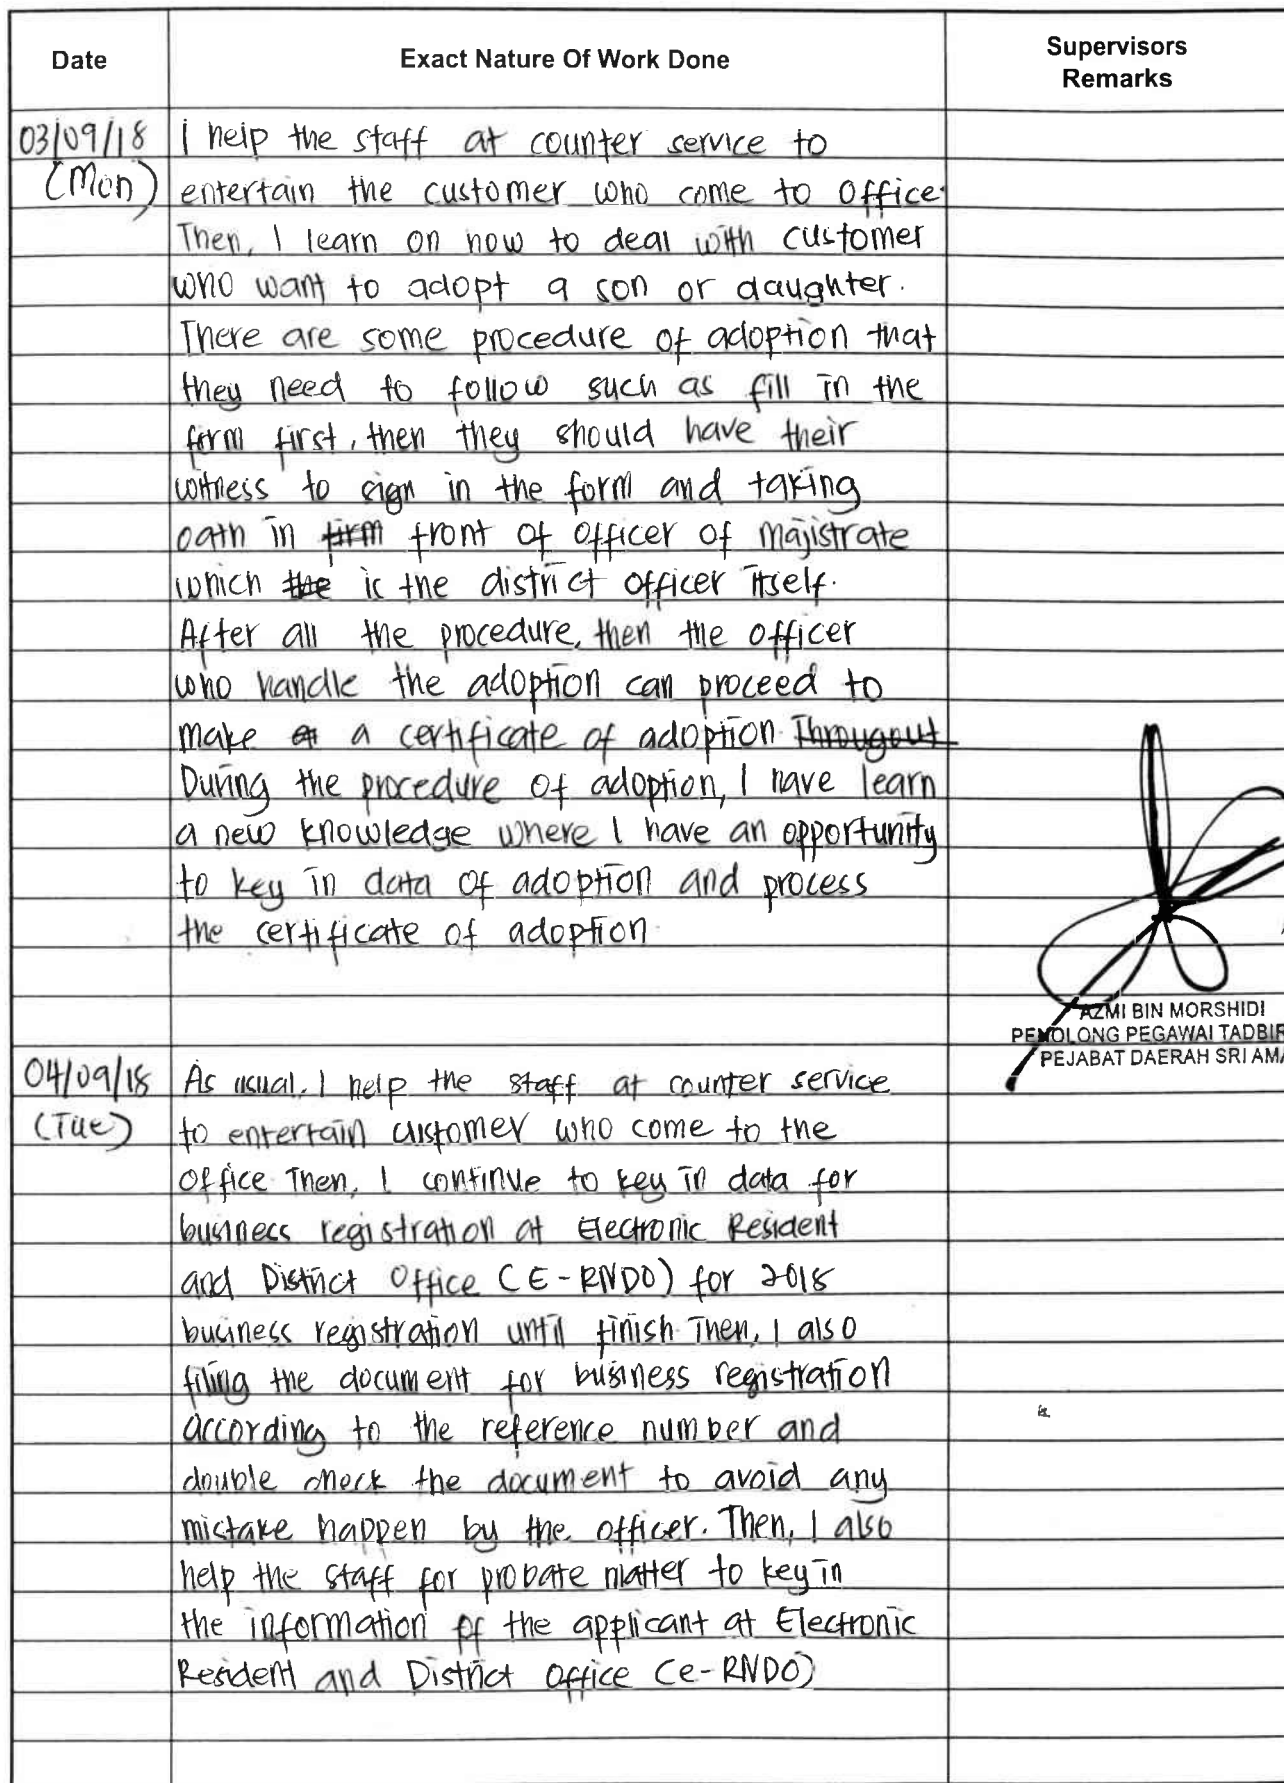 Date
Exact Nature Of Work Done
Supervisors
Remarks
03/09/18
(Mon)
I help the staff at counter service to
entertain the customer who come to office.
Then, I learn on how to deal with customer
who want to adopt a son or daughter.
There are some procedure of adoption that
they need to follow such as fill in the
form first, then they should have their
witness to sign in the form and taking
oath in firm front of officer of majistrate
which the is the district officer itself.
After all the procedure, then the officer
who handle the adoption can proceed to
make a certificate of adoption. Througout
During the procedure of adoption, I have learn
a new knowledge where I have an opportunity
to key in data of adoption and process
the certificate of adoption.
AZMI BIN MORSHIDI
PENOLONG PEGAWAI TADBIR
PEJABAT DAERAH SRI AMA
04/09/18
(Tue)
As usual, I help the staff at counter service
to entertain customer who come to the
office. Then, I continue to key in data for
business registration at Electronic Resident
and District Office (E-RNDO) for 2018
business registration until finish. Then, I also
filing the document for business registration
according to the reference number and
double check the document to avoid any
mistake happen by the officer. Then, I also
help the staff for probate matter to key in
the information of the applicant at Electronic
Resident and District Office (e-RNDO)